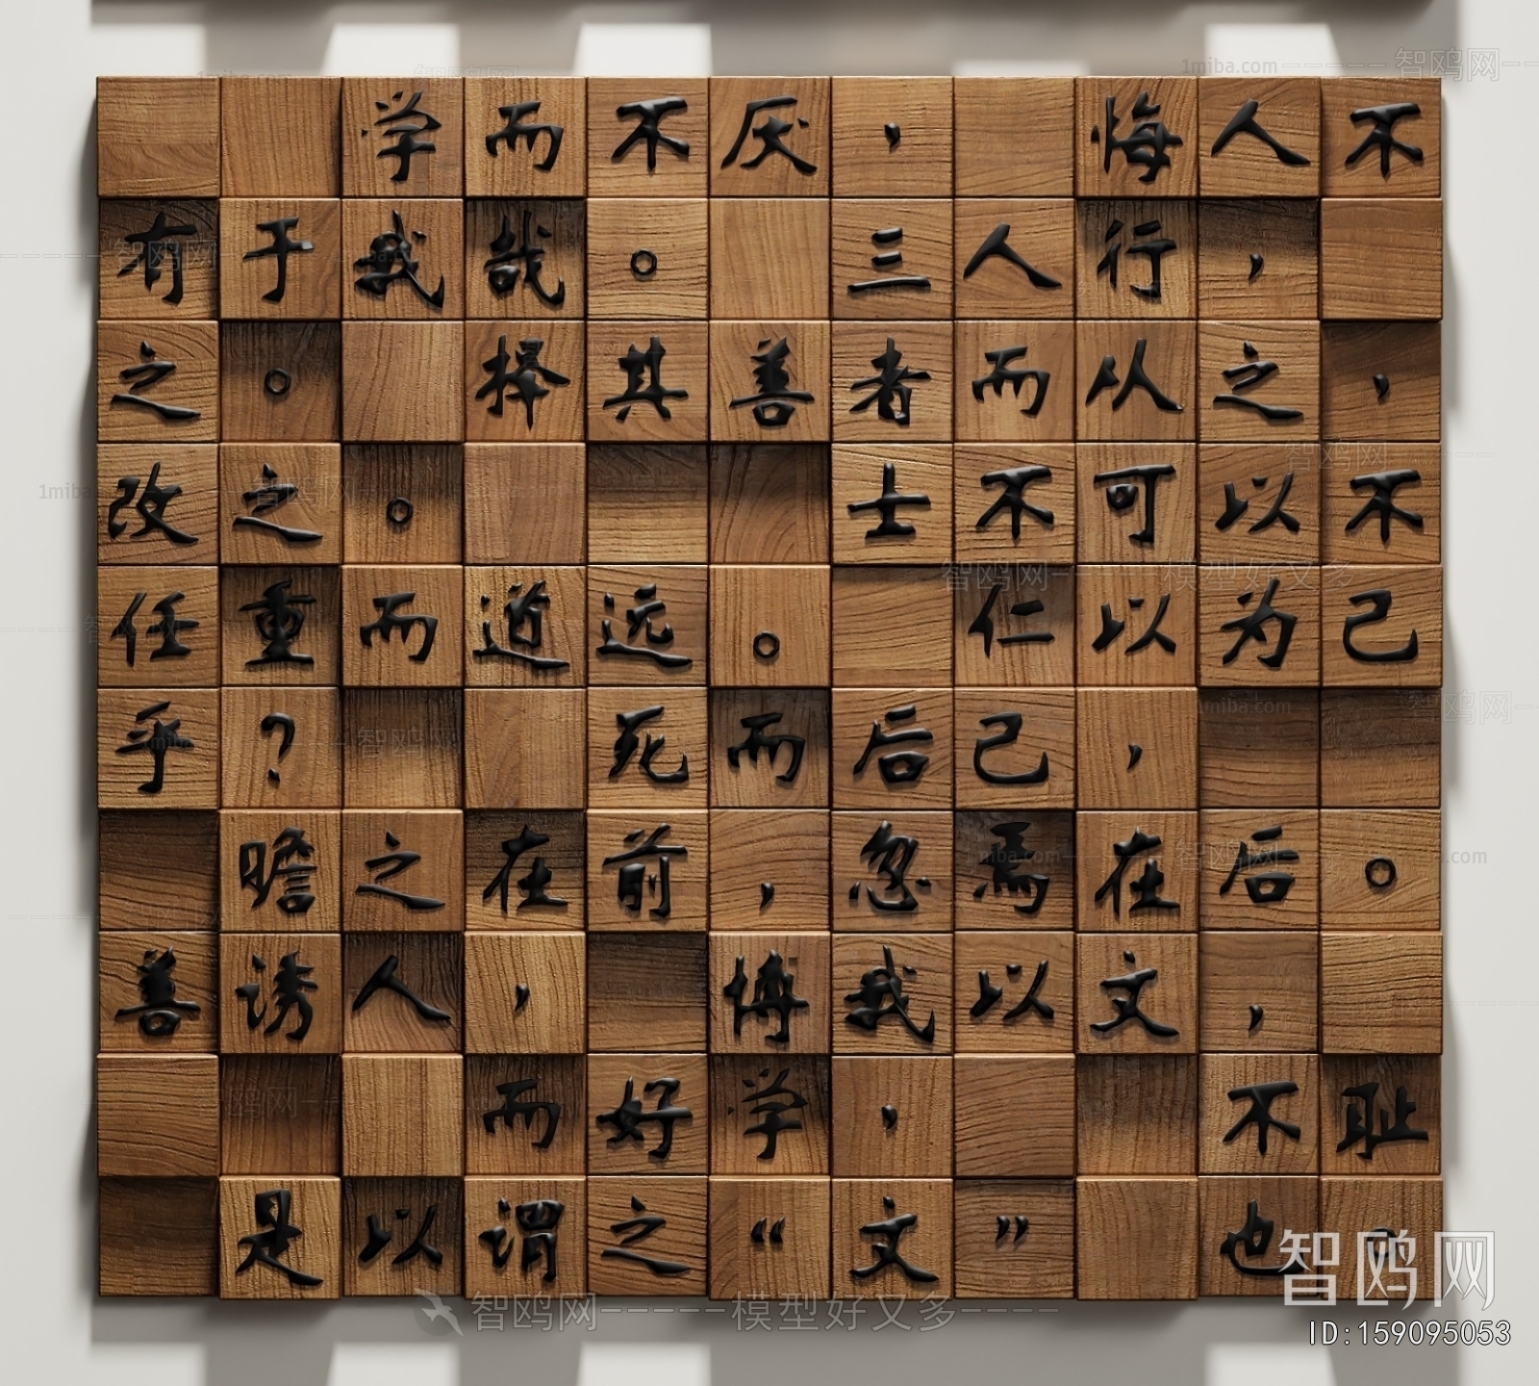 学而不厌, 悔人不
有于我哉。 三人行,
之。 择其善者而从之,
改之。 士不可以不
任重而道远。 仁以为己
乎? 死而后己,
瞻之在前,忽焉在后。
善诱人, 博我以文,
而好学, 不耻
是以谓之“文” 也
智鸥网
ID:159095053
智鸥网-----模型好又多----
1miba.com-----智鸥网--